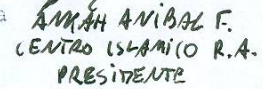 ANIBAL F.
CENTRO ISLAMICO R.A.
PRESIDENTE